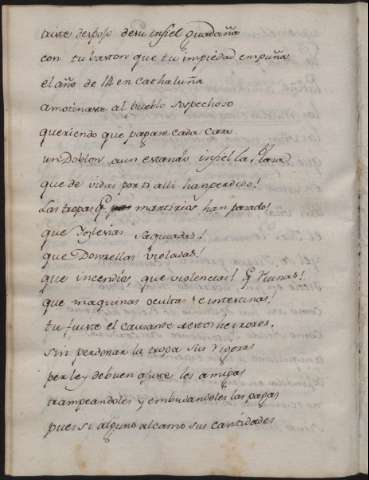 tuvse desposo desu infiel guadaña
con tu baston que tu impiedad empuña
el año de 14 en Cathaluña
amotinarse al pueblo sospechoso
queriendo que pagase cada casa
un Doblon, aun estando infiel la
que de vidas por ti alli han perdido!
las tropas q martirios han pasado!
que Yglesias saqueadas!
que Donzellas violadas!
que incendios, que violencias! q Ruinas!
que maquinas ocultas e intestinas!
tu fuiste el causante destos herrores
sin perdonar la tropa sus rigores
por ley de buen ajuste los amigas
trampeandoles y embudandoles las pagas
pues si alguno alcanso sus cantidades